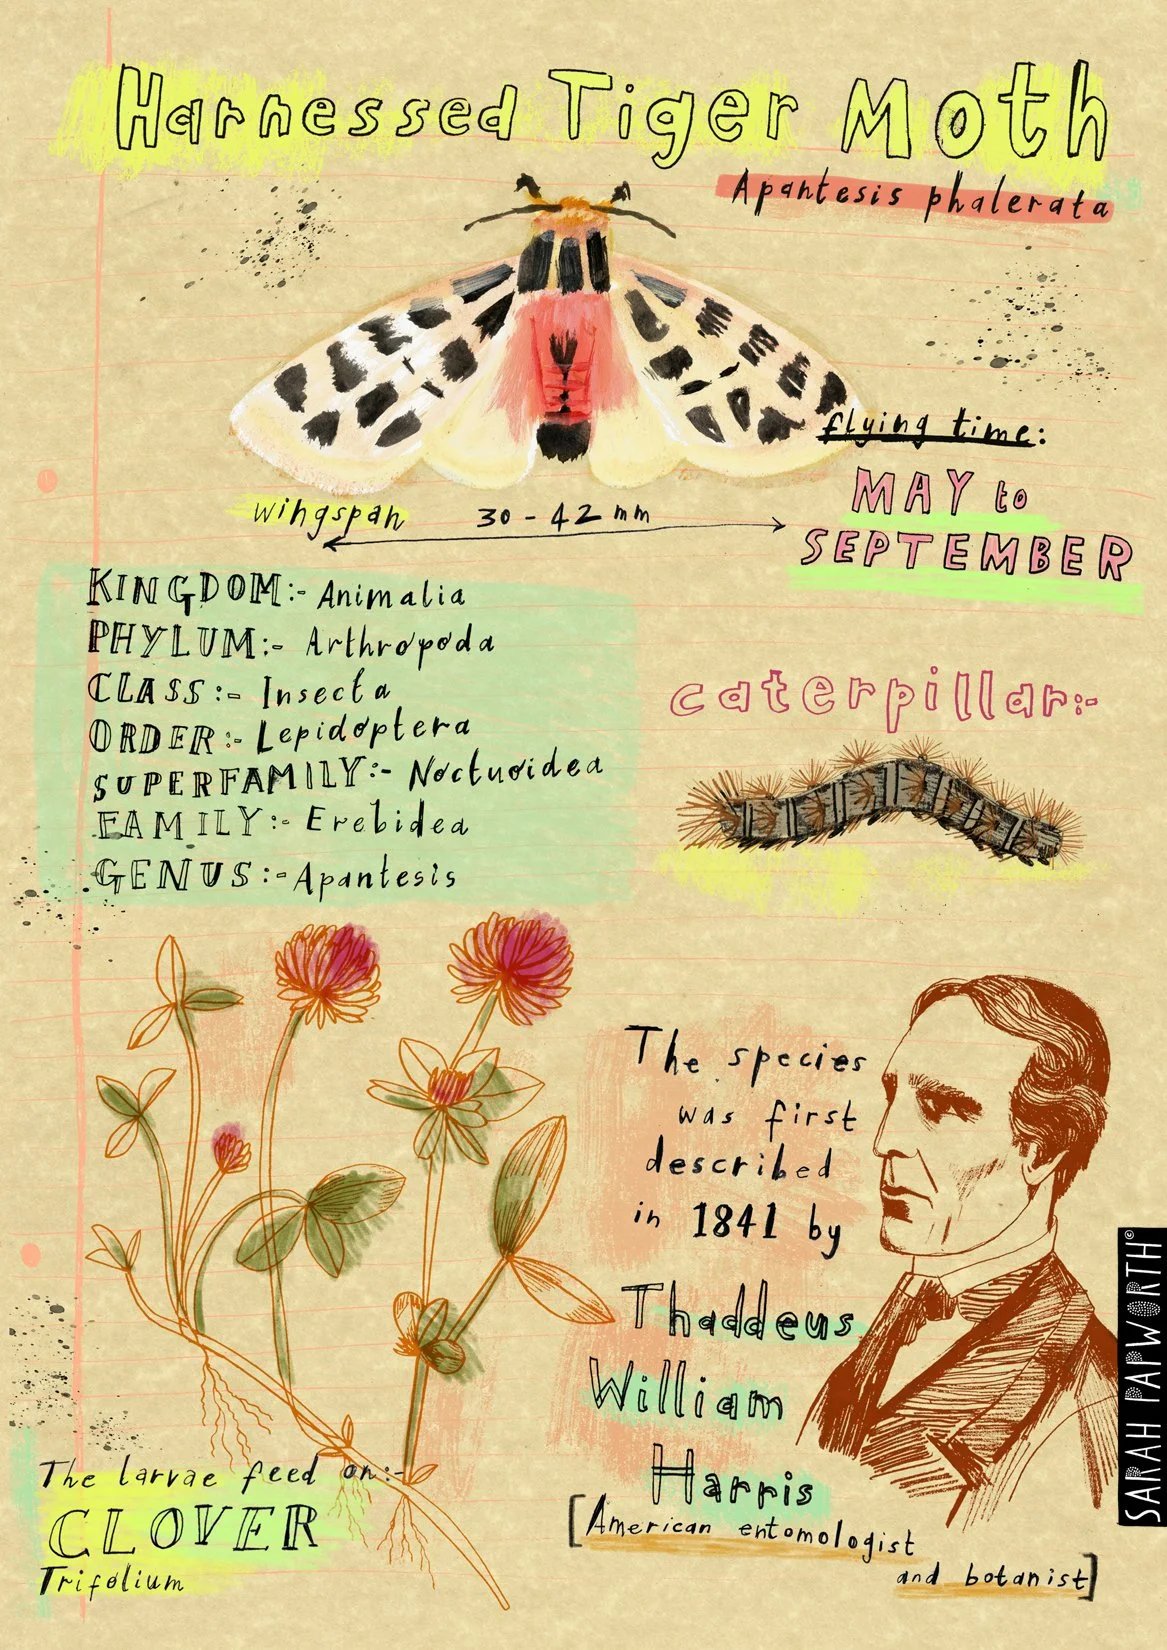 Harnessed Tiger Moth
Apantesis phalerata
flying time:
MAY to
SEPTEMBER
wingspan 30-42 mm
KINGDOM:- Animalia
PHYLUM:- Arthropoda
CLASS:- Insecta
ORDER:- Lepidoptera
SUPERFAMILY:- Noctuoidea
FAMILY:- Erebidea
GENUS:- Apantesis
caterpillar:-
The species
was first
described
in 1841 by
Thaddeus
William
Harris
[American entomologist
and botanist]
The larvae feed on:-
CLOVER
Trifolium
SARAH PAPWORTH©